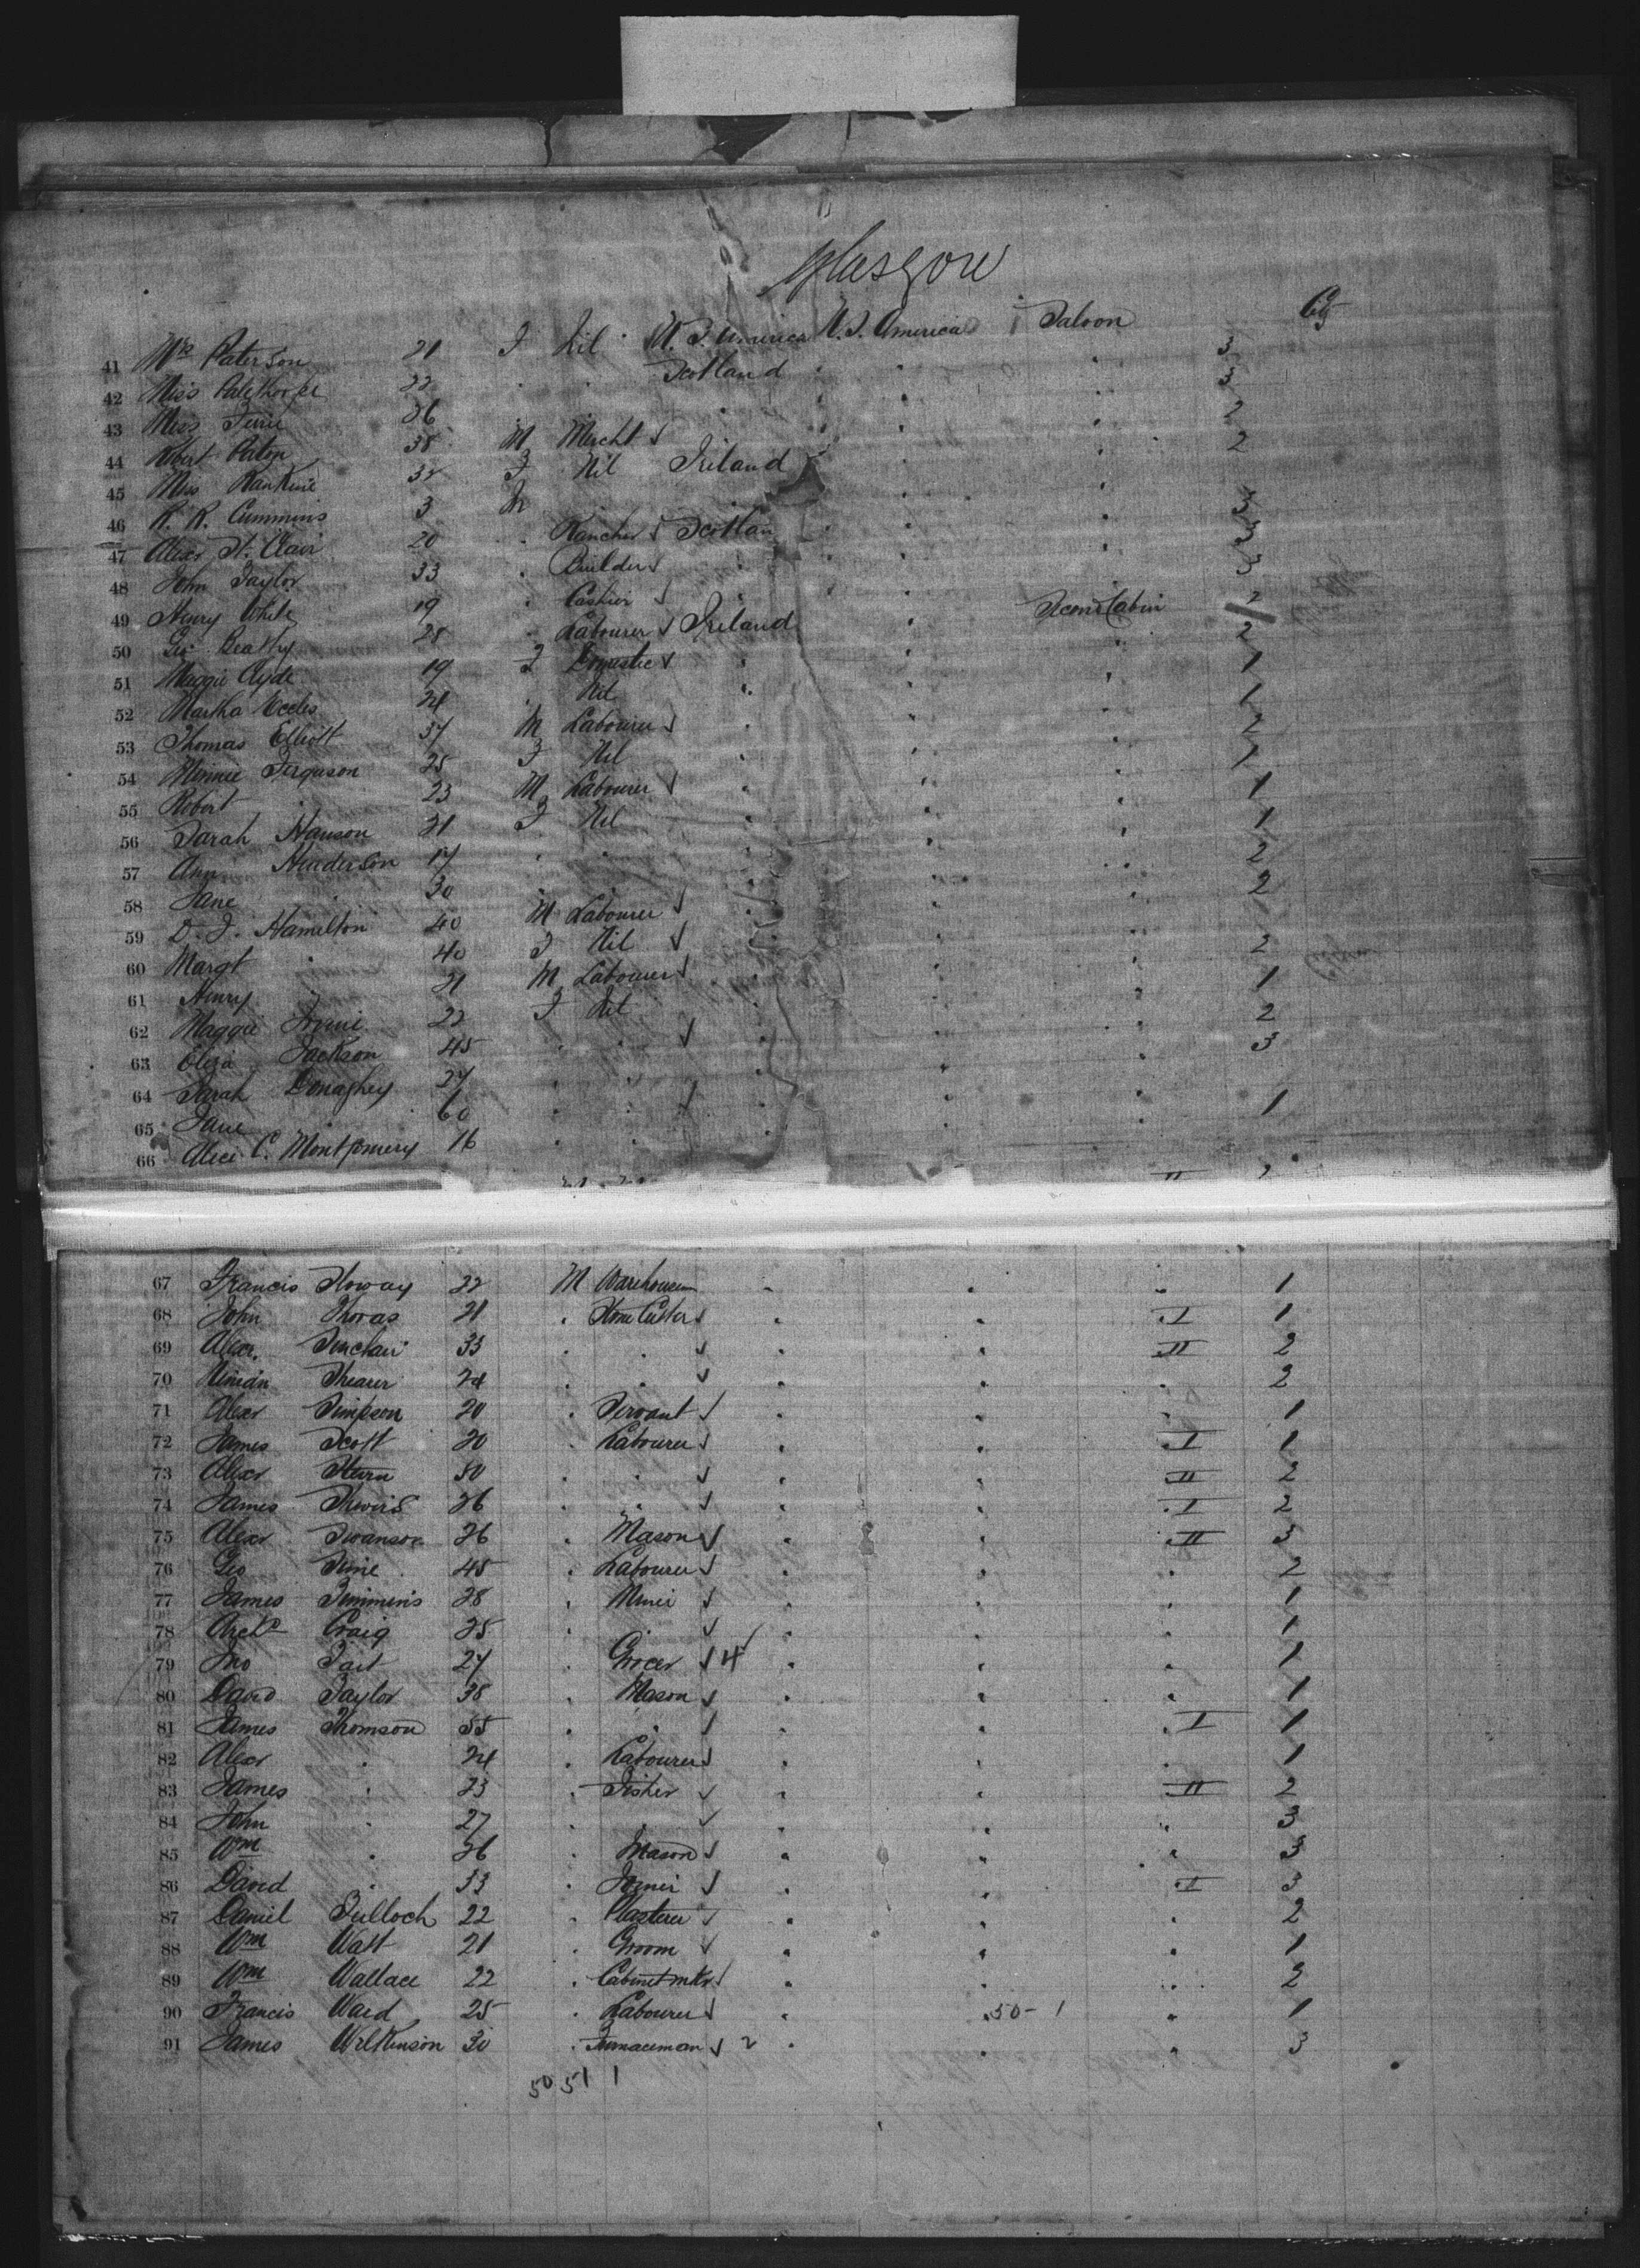 Glasgow
41 Mrs Paterson 21 F Nil U.S. America U.S. America Saloon 3 City
42 Miss 22 Scotland 3
43 Miss 26 2
44 Robert Paton 38 M Mercht 2
45 Miss Rankine 32 F Nil Ireland
46 R. R. Cummins 3 M 3
47 Alexr St. Clair 20 Rancher Scotlan 3
48 John Taylor 33 Builder 3
49 Henry White 19 Cashier Second Cabin 2
50 Geo Beatty 28 Labourer Ireland 2
51 Maggie Clyde 19 F Domestic 1
52 Martha Eccles 24 Nil 1
53 Thomas Elliott 37 M Labourer 2
54 Minnie Ferguson 25 F Nil 1
55 Robert " 23 M Labourer 1
56 Sarah Hanson 21 F Nil 1
57 Ann Henderson 17 " " 2
58 Jane " 30 2
59 D. J. Hamilton 40 M Labourer
60 Margt " 40 F Nil 2
61 Henry " 21 M Labourer 1
62 Maggie Irvine 22 F Nil 2
63 Eliza Jackson 45 " " 3
64 Sarah Donaghey 27 " "
65 Jane " 60 " " 1
66 Alice C. Montgomery 16 " "
II
67 Francis 22 M Warehouseman " " " 1
68 John 21 " Stone Cutter " " I 1
69 Alexr. Sinclair 33 " " " " II 2
70 Shearer 24 " " " " " 2
71 Alexr Simpson 20 " Servant " " " 1
72 James Scott 20 " Labourer " " I 1
73 Alexr 50 " " " " II 2
74 James 26 " " " " I 2
75 Alexr Swanson 26 " Mason " " II 3
76 Geo 45 " Labourer " " " 2
77 James Timmins 28 " Miner " " " 1
78 Archd Craig 25 " " " " " 1
79 Jno Tait 27 " Grocer 4 " " " 1
80 David Taylor 38 " Mason " " " 1
81 James Thomson 55 " " " " I 1
82 Alexr " 24 " Labourer " " " 1
83 James " 23 " Fisher " " II 2
84 John " 27 " " " " " 3
85 Wm " 26 " Mason " " " 3
86 David " 33 " Joiner " " I 3
87 Daniel Tulloch 22 " Plasterer " " " 2
88 Wm Watt 21 " Groom " " " 1
89 Wm Wallace 22 " Cabinet mkr " " " 2
90 Francis Ward 25 " Labourer " 50-1 " 1
91 James Wilkinson 30 " Furnaceman 2 " " " 3
50 51 1